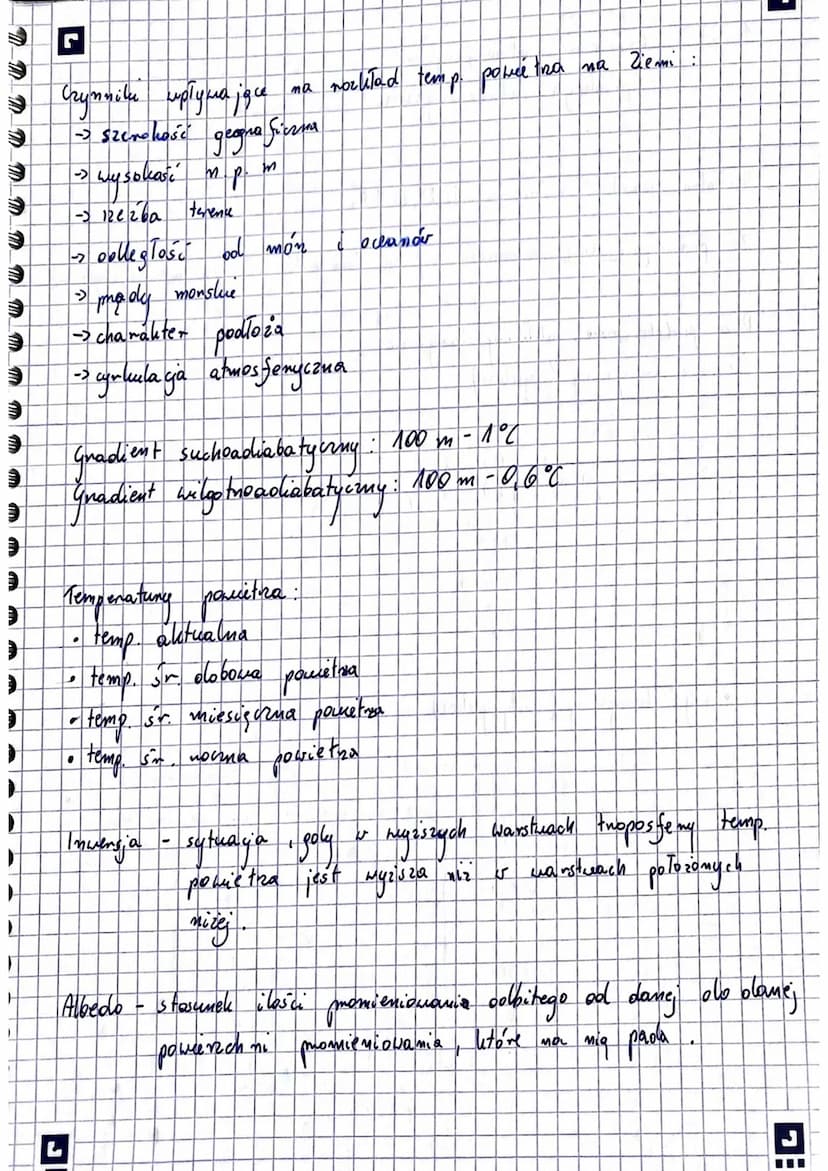 Czynniki wpływające na rozkład temp. powietrza na Ziemi :
-> szerokość geograficzna
-> wysokość n. p. m
-> rzeźba terenu
-> odległość od mórz i oceanów
-> prądy morskie
-> charakter podłoża
-> cyrkulacja atmosferyczna
Gradient suchoadiabatyczny : 100 m - 1°C
Gradient wilgotnoadiabatyczny : 100 m - 0,6°C
Temperatury powietrza :
• temp. aktualna
• temp. śr. dobowa powietrza
• temp. śr. miesięczna powietrza
• temp. śr. roczna powietrza
Inwersja - sytuacja , gdy w wyższych warstwach troposfery temp.
powietrza jest wyższa niż w warstwach położonych
niżej .
Albedo - stosunek ilości promieniowania odbitego od danej do danej
powierzchni promieniowania , które na nią pada .